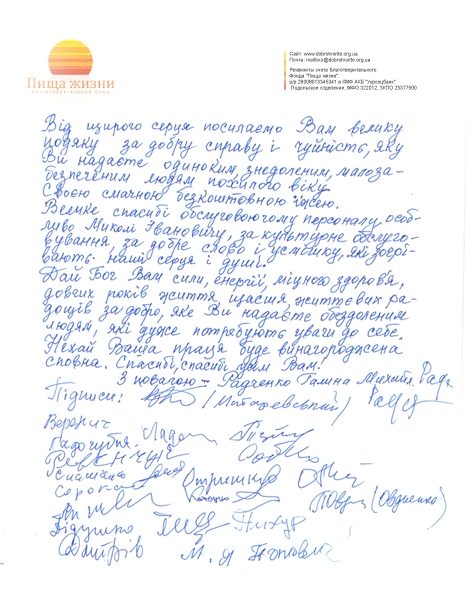 Пища жизни
Благотворительный фонд
Сайт: www.dobrotvorite.org.ua
Почта:
Реквизиты счета Благотворительного
Фонда "Пища жизни"
р/р 26008013345341 в КМФ АКБ "Укрсоцбанк"
Подольское отделение, МФО 322012, ЗКПО 23377900
Від щирого серця посилаємо Вам велику
подяку за добру справу і чуйність, яку
Ви надаєте одиноким, знедоленим, малоза-
безпеченим людям похилого віку
Своєю смачною безкоштовною їжею.
Велике спасибі обслуговоючому персоналу, особ-
ливо Миколі Івановичу, за культурне обслуго-
вування, за добре слово і усмішку, які зогрі-
вають наші серця і душі.
Дай Бог Вам сили, енергії, міцного здоров'я,
довгих років життя щастя життєвих ра-
дощів за добро, яке Ви надаєте бездоленим
людям, які дуже потребують уваги до себе.
Нехай Ваша праця буде винагороджена
сповна. Спасибі, спасибі Вам!
З повагою - Радченко Галина Михайл.
Підписи:
Воронич
Ревкнчук
Сорока
Стришко
(Овдієнко)
Підушко
Дмитрів М. Я Попович